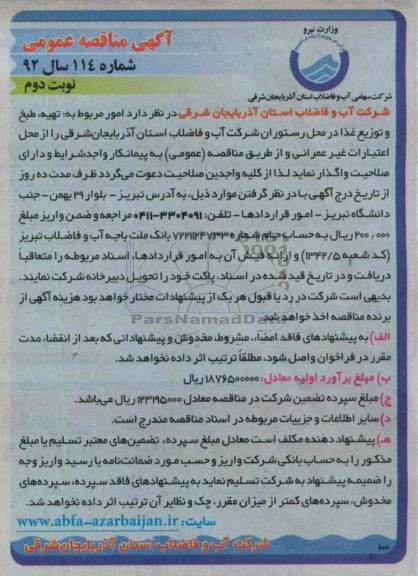 وزارت نیرو
شرکت سهامی آب و فاضلاب استان آذربایجان شرقی
آگهی مناقصه عمومی
شماره ۱۱۴ سال ۹۲
نوبت دوم
شرکت آب و فاضلاب استان آذربایجان شرقی در نظر دارد امور مربوط به: تهیه، طبخ
و توزیع غذا در محل رستوران شرکت آب و فاضلاب استان آذربایجان‌شرقی را از محل
اعتبارات غیر عمرانی و از طریق مناقصه (عمومی) به پیمانکار واجد شرایط و دارای
صلاحیت واگذار نماید لذا از کلیه واجدین صلاحیت دعوت می‌گردد ظرف مدت ده روز
از تاریخ درج آگهی با در نظر گرفتن موارد ذیل، به آدرس تبریز - بلوار ۲۹ بهمن - جنب
دانشگاه تبریز - امور قراردادها - تلفن: ۳۳۰۴۰۹۱-۰۴۱۱ مراجعه و ضمن واریز مبلغ
۲۰۰,۰۰۰ ریال به حساب جام شماره ۷۲۲۱۱۲۴۷/۳۳ بانک ملت باجه آب و فاضلاب تبریز
(کد شعبه ۱۳۴۲/۵) و ارائه فیش آن به امور قراردادها، اسناد مربوطه را متعاقباً
دریافت و در تاریخ قید شده در اسناد، پاکت خود را تحویل دبیرخانه شرکت نمایند.
بدیهی است شرکت در رد یا قبول هر یک از پیشنهادات مختار خواهد بود هزینه آگهی از
برنده مناقصه اخذ خواهد شد.
ParsNamadData
الف) به پیشنهادهای فاقد امضاء، مشروط، مخدوش و پیشنهاداتی که بعد از انقضاء مدت
مقرر در فراخوان واصل شود، مطلقاً ترتیب اثر داده نخواهد شد.
ب) مبلغ برآورد اولیه معادل: ۱۸۷۶۵۰۰۰۰۰ ریال
ج) مبلغ سپرده تضمین شرکت در مناقصه معادل ۱۲۳۱۹۵۰۰۰ ریال می‌باشد.
د) سایر اطلاعات و جزییات مربوطه در اسناد مناقصه مندرج است.
هـ) پیشنهاد دهنده مکلف است معادل مبلغ سپرده، تضمین‌های معتبر تسلیم یا مبلغ
مذکور را به حساب بانکی شرکت واریز و حسب مورد ضمانت‌نامه یا رسید واریز وجه
را ضمیمه پیشنهاد به شرکت تسلیم نماید به پیشنهادهای فاقد سپرده، سپرده‌های
مخدوش، سپرده‌های کمتر از میزان مقرر، چک و نظایر آن ترتیب اثر داده نخواهد شد.
سایت: www.abfa-azarbaijan.ir
شرکت آب و فاضلاب استان آذربایجان‌شرقی
۱۰۰